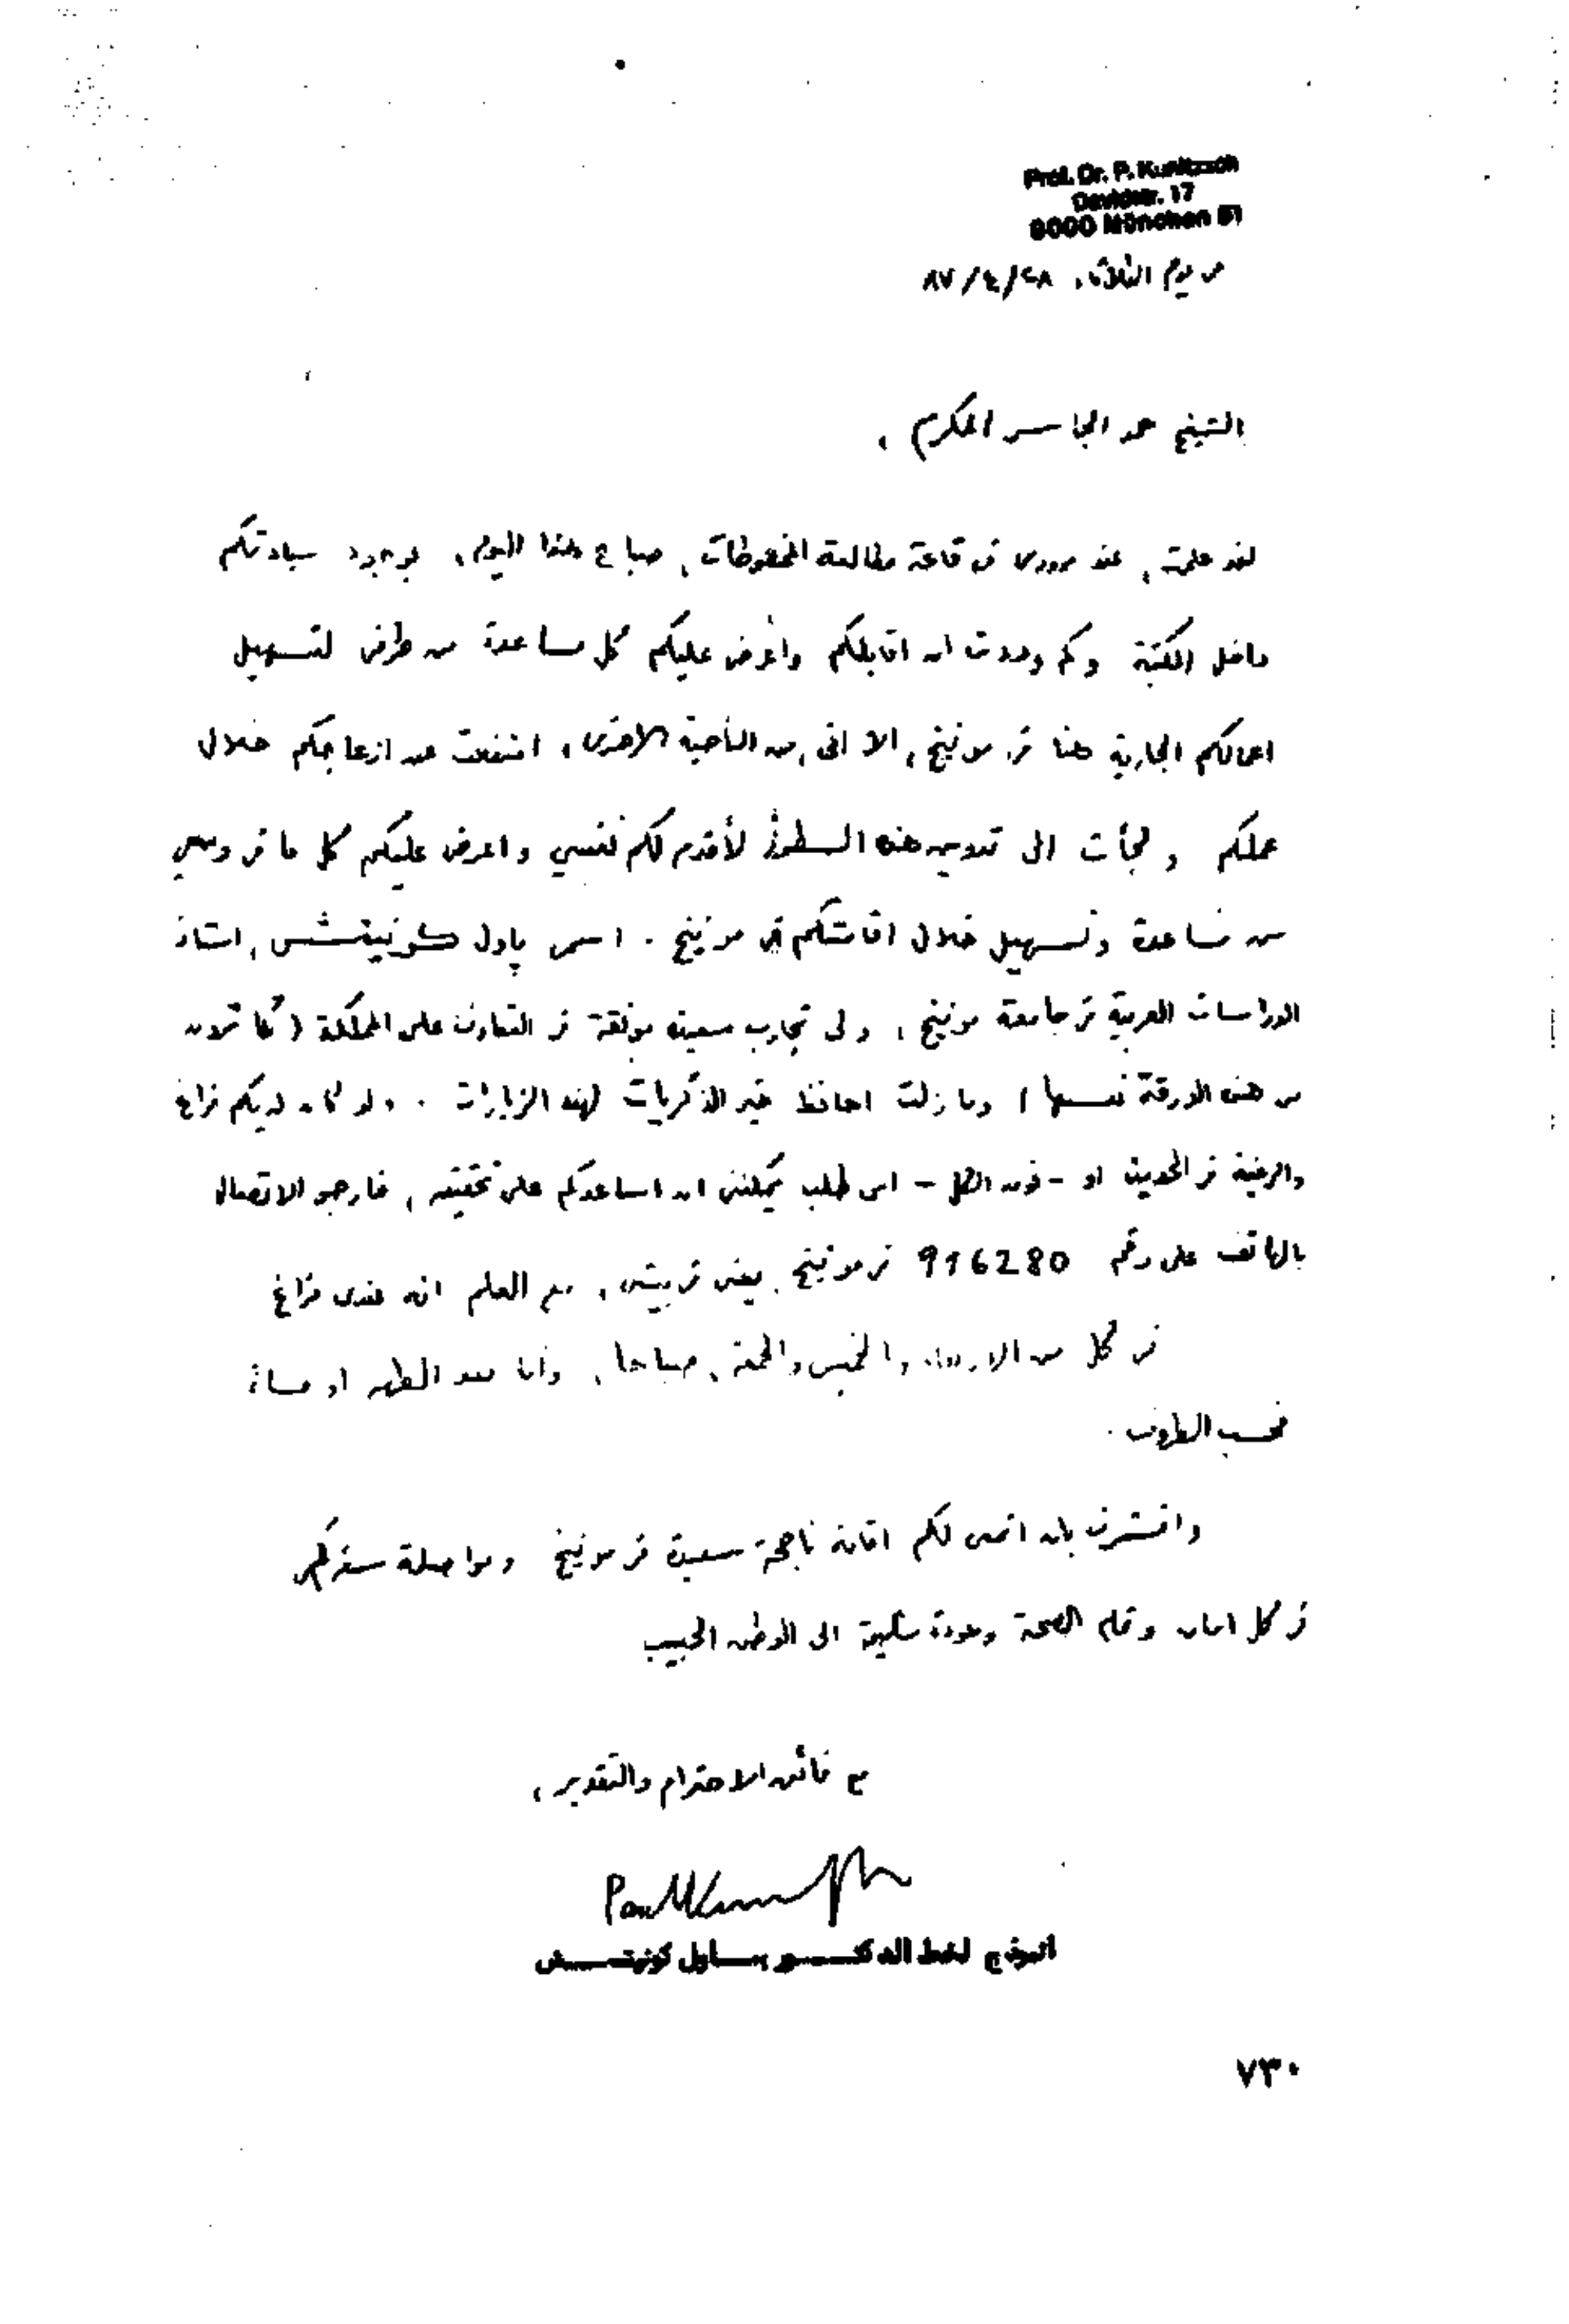 Prof. Dr. P. Kunitzsch
Davidstr. 17
8000 München 81
في يوم الثلاثاء ٨٧/٤/٢٨
الشيخ حمد الجاسر المكرم ،
لقد علمت ، عند مروري في قاعة مطالعة المخطوطات ، صباح هذا اليوم ، بوجود سيادتكم
داخل المكتبة وكم وددت ان اقابلكم واعرض عليكم كل مساعدة من طرفي لتسهيل
اعمالكم الجارية هنا في مونيخ ، الا انى ، من الناحية الاخرى ، عن ازعاجكم خلال
عملكم ولجأت الى هذه السطور لأقدم لكم نفسي واعرض عليكم كل ما في وسعي
من مساعدة وتسهيل خلال اقامتكم في مونيخ . اسمي پاول كونيتش ، استاذ
الدراسات العربية في جامعة مونيخ ، ولى تجارب سعيدة موفقة في التعاون على المملكة ( كما ترون
من هذه الورقة نفسها ) وما زلت احافظ خير الذكريات لهذه الزيارات . ولو كان لديكم فراغ
والرغبة في الحديث او - فوق الكل - اى طلب يمكننى ان اساعدكم على تحقيقه ، فارجو الاتصال
بالهاتف على رقم 916280 في مونيخ ، يعنى في بيتى ، مع العلم انه عندى فراغ
في كل من الاربعاء والخميس والجمعة ، صباحا ، وأما بعد الظهر او مساءً
فحسب الظروف .
واتشرف بان اتمنى لكم اقامة ناجحة سعيدة في مونيخ ومواصلة سفركم
في كل امان وتمام الصحة وعودة سليمة الى الوطن الحبيب
مع فائق الاحترام والتقدير ،
Paul Kunitzsch
انموذج لخط الدكتور بساول كونيتسش
٧٣٠